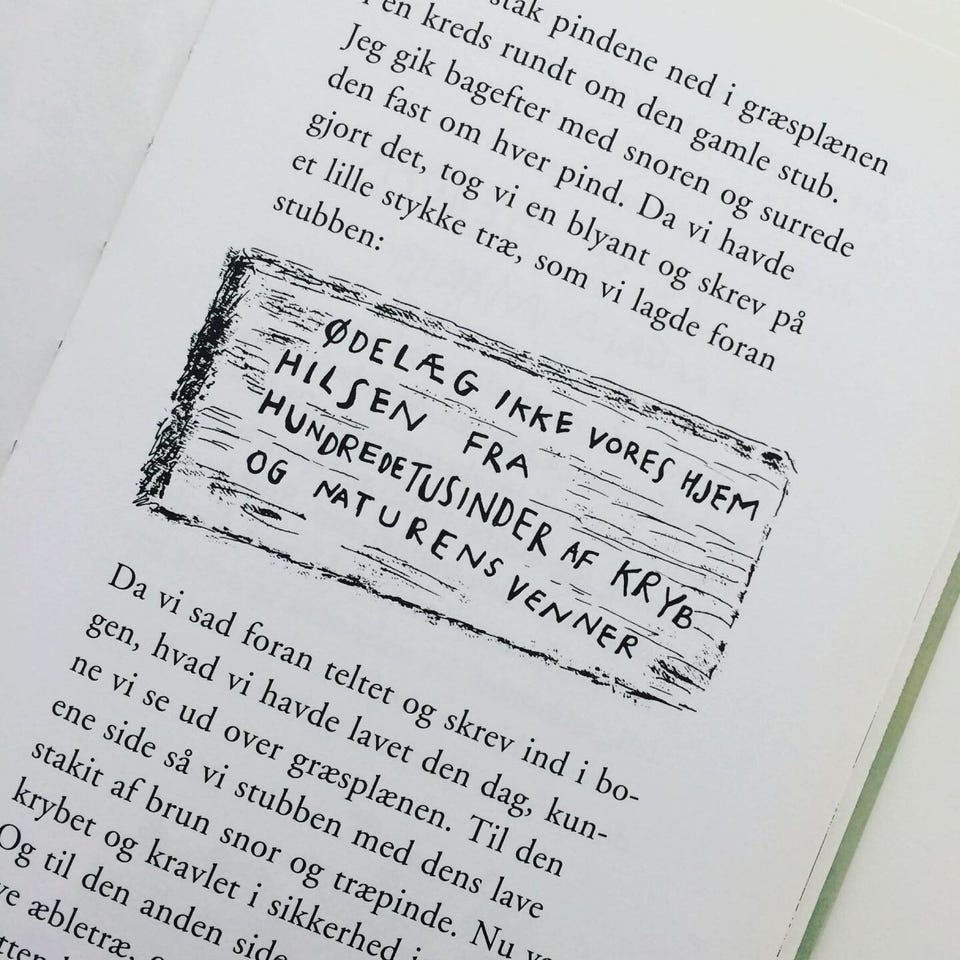 stak pindene ned i græsplænen
i en kreds rundt om den gamle stub.
Jeg gik bagefter med snoren og surrede
den fast om hver pind. Da vi havde
gjort det, tog vi en blyant og skrev på
et lille stykke træ, som vi lagde foran
stubben:
ØDELÆG IKKE VORES HJEM
HILSEN FRA
HUNDREDETUSINDER AF KRYB
OG NATURENS VENNER
Da vi sad foran teltet og skrev ind i bo-
gen, hvad vi havde lavet den dag, kun-
ne vi se ud over græsplænen. Til den
ene side så vi stubben med dens lave
stakit af brun snor og træpinde. Nu
krybet og kravlet i sikkerhed
Og til den anden side
æbletræ,